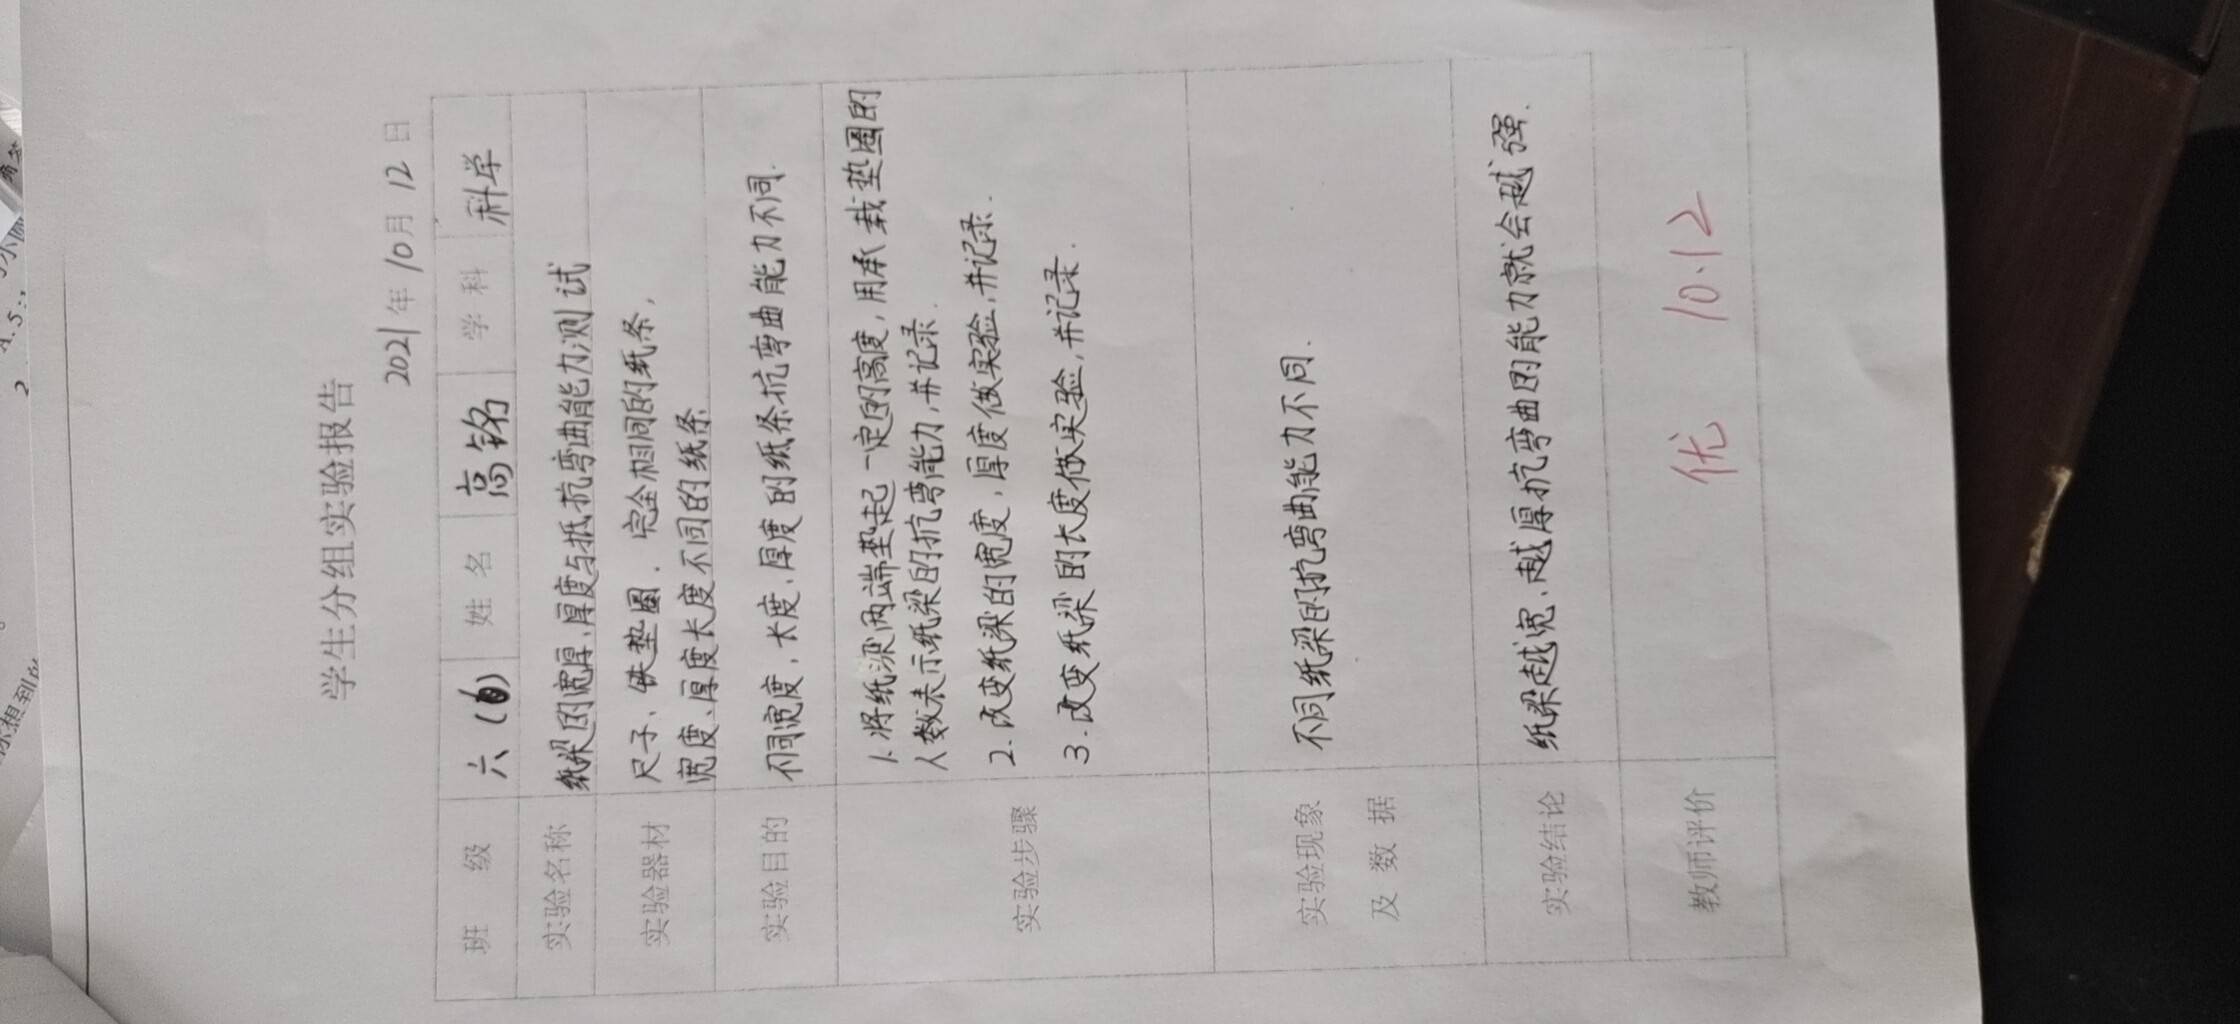 学生分组实验报告
2021年10月12日
班 级 六（6） 姓 名 高铭 学 科 科学
实验名称 纸梁的宽厚、厚度与抵抗弯曲能力测试
实验器材 尺子、铁垫圈、完全相同的纸条,
宽度、厚度长度不同的纸条
实验目的 不同宽度、长度、厚度的纸条抗弯曲能力不同.
实验步骤
1. 将纸梁两端垫起一定的高度,用承载垫圈的
人数表示纸梁的抗弯能力,并记录.
2. 改变纸梁的宽度、厚度做实验,并记录.
3. 改变纸梁的长度做实验,并记录.
实验现象
及 数 据
不同纸梁的抗弯曲能力不同.
实验结论 纸梁越宽、越厚抗弯曲的能力就会越强.
教师评价 优 10.12